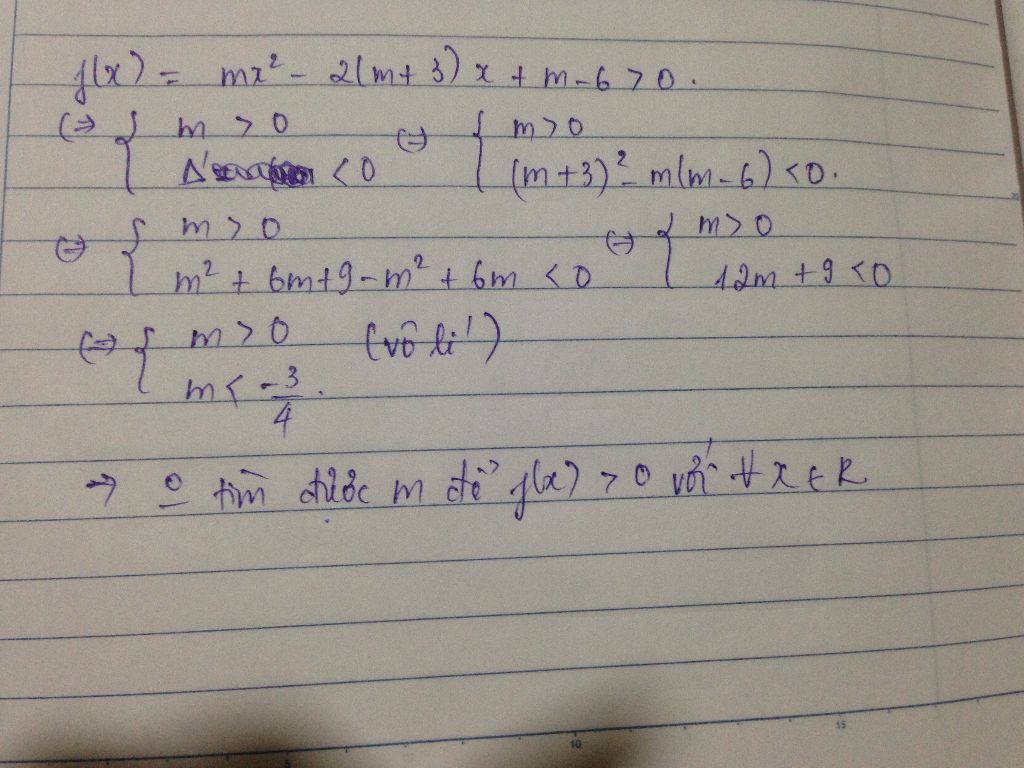 f(x) = mx² - 2(m+3)x + m-6 > 0.
(=> { m > 0 (=) { m > 0
Δ' < 0 (m+3)² - m(m-6) < 0.
(=) { m > 0 (=) { m > 0
m² + 6m+9-m² + 6m < 0 12m + 9 < 0
(=> { m > 0 (vô lí)
m < -3/4.
→ o tìm được m để f(x) > 0 với ∀ x ∈ R
5 10 15 20